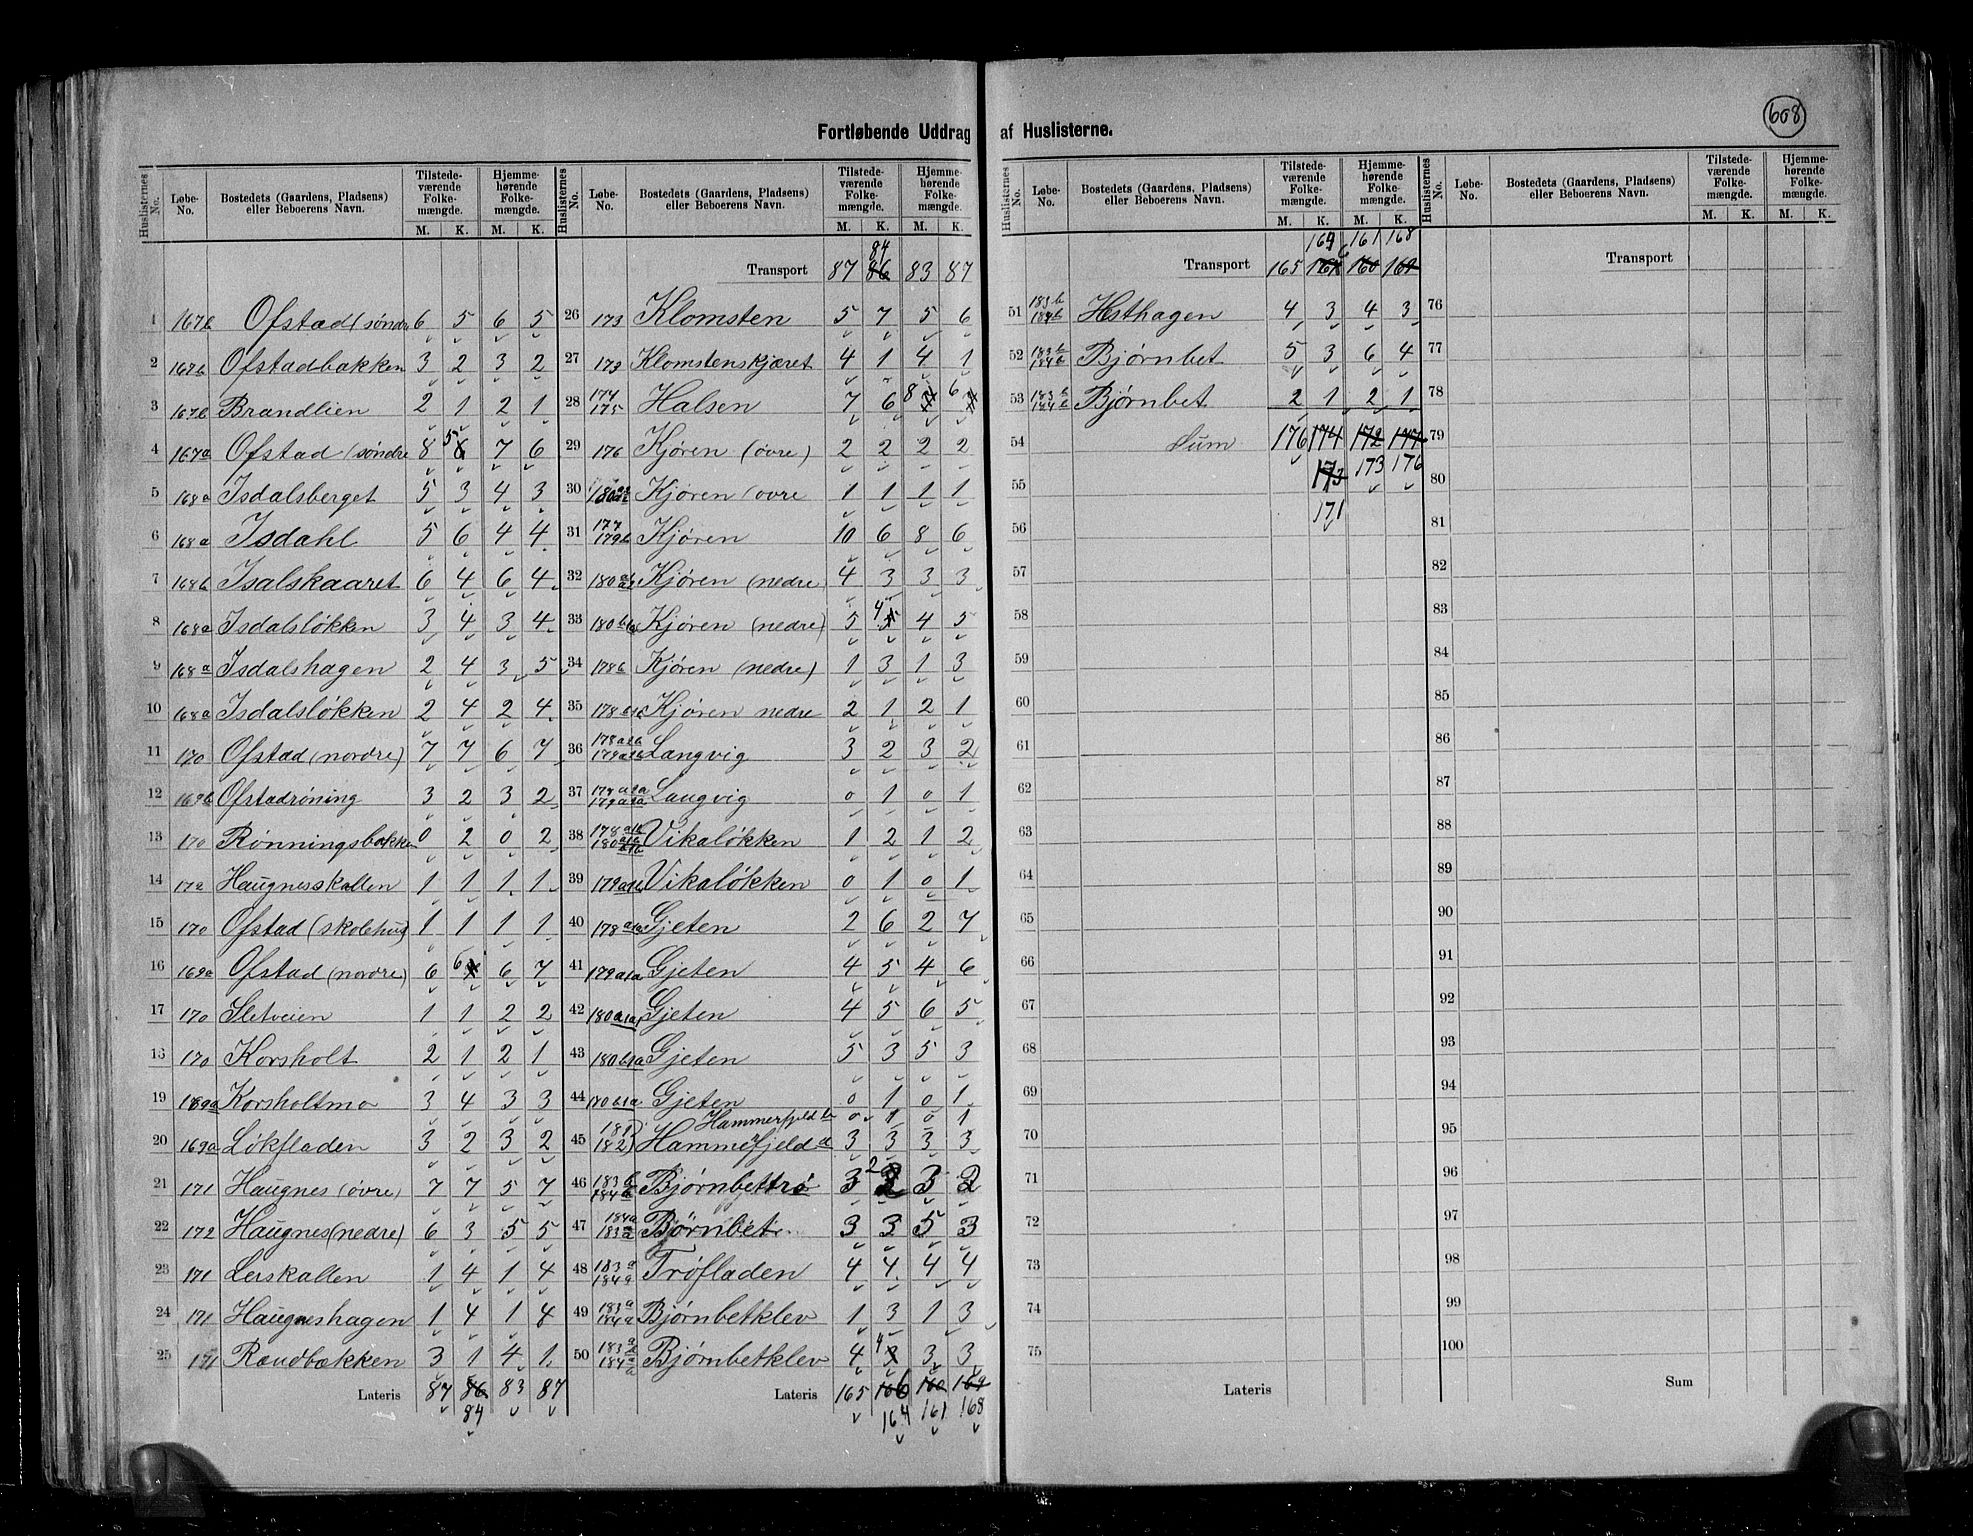 608
Fortløbende Uddrag af Huslisterne.
Huslisternes No. Løbe-No. Bostedets (Gaardens, Pladsens) eller Beboerens Navn. Tilstedeværende Folkemængde. Hjemmehørende Folkemængde.
M. K. M. K.
1 167b Ofstad (søndre 6 5 6 5
2 167b Ofstadbakken 3 2 3 2
3 167b Brandlien 2 1 2 1
4 167a Ofstad (søndre 8 5 7 6
5 168a Isdalsberget 5 3 4 3
6 168a Isdahl 5 6 4 4
7 168b Isalskaaret 6 4 6 4
8 168a Isdalsløkken 3 4 3 4
9 168a Isdalshagen 2 4 3 5
10 168a Isdalsløkken 2 4 2 4
11 170 Ofstad (nordre) 7 7 6 7
12 169b Ofstadrøning 3 2 3 2
13 170 Rønningsbakken 0 2 0 2
14 172 Haugnesskallen 1 1 1 1
15 170 Ofstad (skolehus) 1 1 1 1
16 169a Ofstad (nordre) 6 6 6 7
17 170 Sletveien 1 1 2 2
18 170 Korsholt 2 1 2 1
19 Korsholtmo 3 4 3 3
20 169a Løkfladen 3 2 3 2
21 171 Haugnes (øvre) 7 7 5 7
22 172 Haugnes (nedre) 6 3 5 5
23 171 Lerskallen 1 4 1 4
24 171 Haugneshagen 1 4 1 4
25 171 Randbakken 3 1 4 1
Lateris 87 86 83 87
84
Huslisternes No. Løbe-No. Bostedets (Gaardens, Pladsens) eller Beboerens Navn. Tilstedeværende Folkemængde. Hjemmehørende Folkemængde.
M. K. M. K.
84
Transport 87 86 83 87
26 173 Klomsten 5 7 5 6
27 173 Klomstenskjæret 4 1 4 1
28 174 175 Halsen 7 6 8 6
29 176 Kjøren (øvre) 2 2 2 2
30 Kjøren (øvre 1 1 1 1
31 177 179b Kjøren 10 6 8 6
32 Kjøren (nedre) 4 3 3 3
33 Kjøren (nedre) 5 4 4 5
34 178b Kjøren (nedre) 1 3 1 3
35 Kjøren nedre 2 1 2 1
36 Langvig 3 2 3 2
37 Langvig 0 1 0 1
38 Vikaløkken 1 2 1 2
39 Vikaløkken 0 1 0 1
40 Gjeten 2 6 2 7
41 Gjeten 4 5 4 6
42 Gjeten 4 5 6 5
43 Gjeten 5 3 5 3
44 Gjeten 0 1 0 1
Hammerfjeld 0 1 0 1
45 181 182 Hammerfjeld 3 3 3 3
46 183b 184b Bjørnbettrø 3 2 3 2
47 184a 183a Bjørnbet 3 3 5 3
48 183a 184a Trøfladen 4 4 4 4
49 183a 184a Bjørnbetklev 1 3 1 3
50 183a 184a Bjørnbetklev 4 4 3 3
Lateris 165 166 160 169
164 161 168
Huslisternes No. Løbe-No. Bostedets (Gaardens, Pladsens) eller Beboerens Navn. Tilstedeværende Folkemængde. Hjemmehørende Folkemængde.
M. K. M. K.
161 168
Transport 165 160
51 183b 184b Hsthagen 4 3 4 3
52 183b 184b Bjørnbet 5 3 6 4
53 183b 184b Bjørnbet 2 1 2 1
54 Sum 176 174 172 177
55 173 173 176
56 171
57
58
59
60
61
62
63
64
65
66
67
68
69
70
71
72
73
74
75
Lateris
Huslisternes No. Løbe-No. Bostedets (Gaardens, Pladsens) eller Beboerens Navn. Tilstedeværende Folkemængde. Hjemmehørende Folkemængde.
M. K. M. K.
Transport
76
77
78
79
80
81
82
83
84
85
86
87
88
89
90
91
92
93
94
95
96
97
98
99
100
Sum